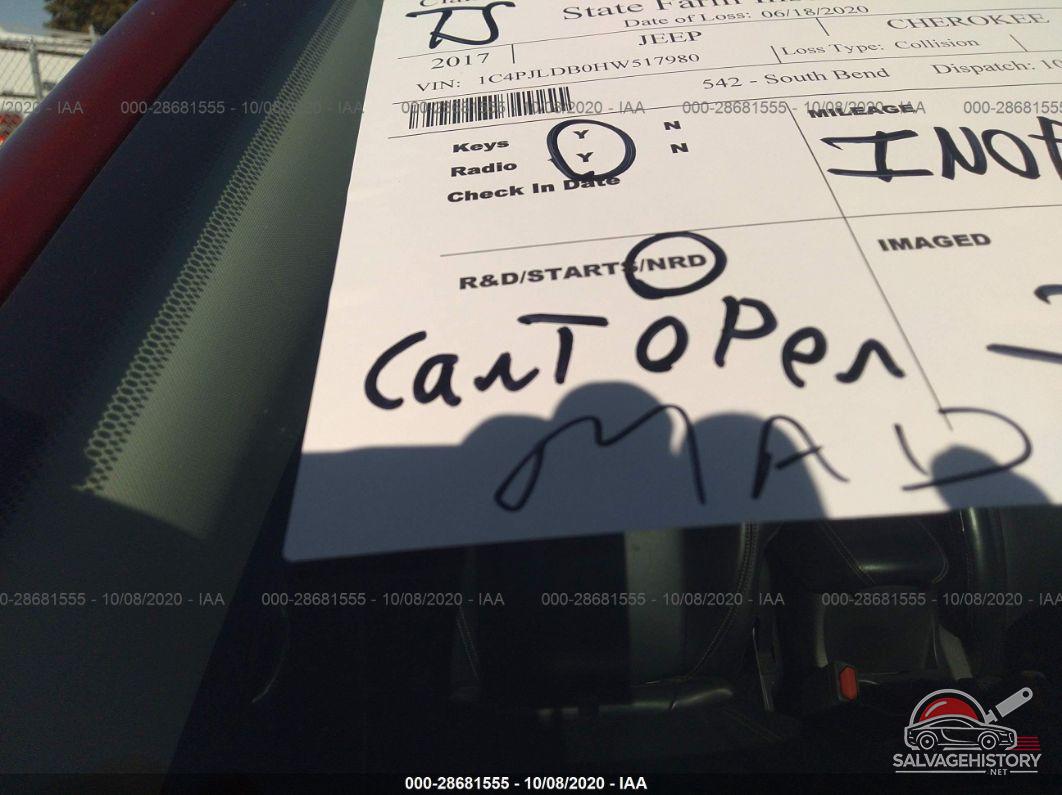 State Farm
TJ
Date of Loss: 06/18/2020
2017 JEEP CHEROKEE
VIN: 1C4PJLDB0HW517980 Loss Type: Collision
542 - South Bend Dispatch: 10
/2020 - IAA 000-28681555 - 10/08/2020 - IAA 000-28681555 - 10/08/2020 - IAA 000-28681555 - 10/08/2020 - IAA 000-28681555 - 10/08
Keys Y N
MILEAGE
Radio Y N
INOP
Check In Date
R&D/STARTS/NRD
IMAGED
Cant OPen
MAD
000-28681555 - 10/08/2020 - IAA 000-28681555 - 10/08/2020 - IAA 000-28681555 - 10/08/2020 - IAA 000-28681555 - 10/08/2020
SALVAGEHISTORY
.NET
000-28681555 - 10/08/2020 - IAA